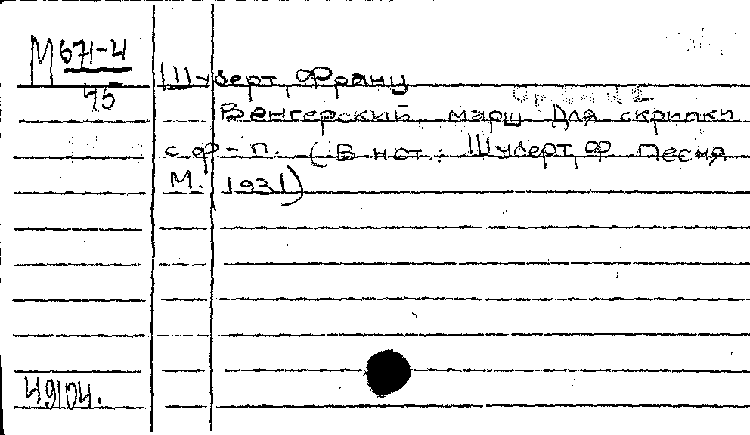 М 671-4
45
Шуберт, Франц
Венгерский марш для скрипки
с ф-п. (В нот.: Шуберт, Ф Песня
М. 1931)
49104.